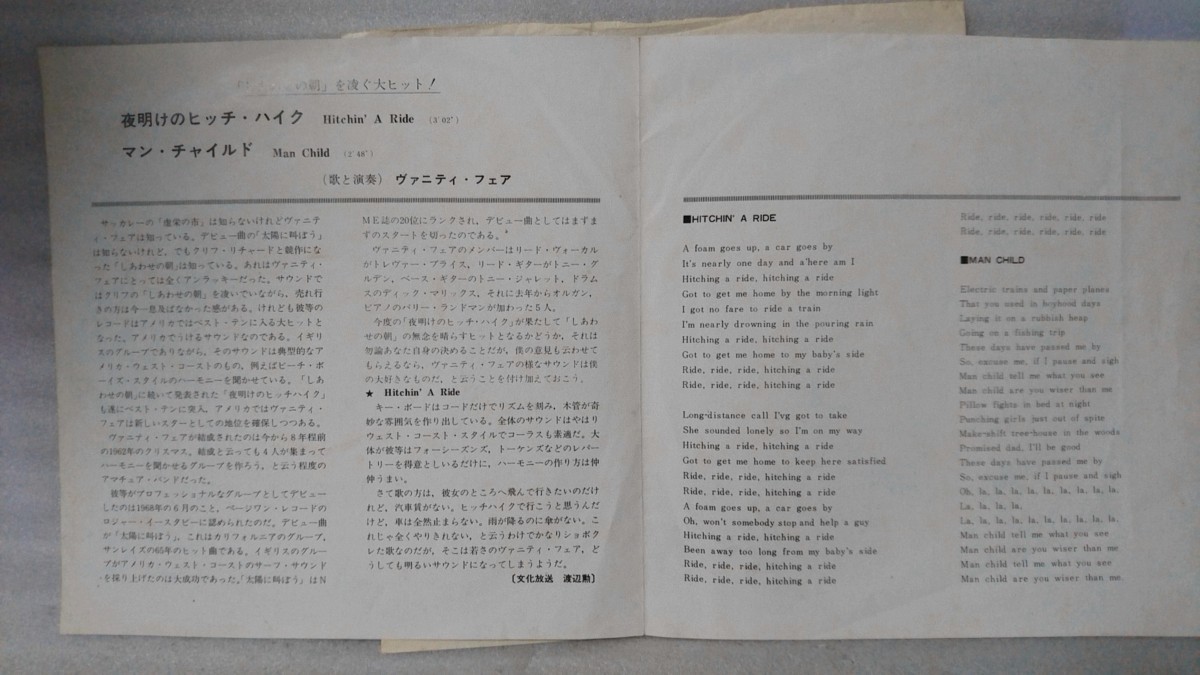 の朝」を凌ぐ大ヒット!
夜明けのヒッチ・ハイク Hitchin' A Ride (3′02″)
マン・チャイルド Man Child (2′48″)
(歌と演奏) ヴァニティ・フェア
サッカレーの「虚栄の市」は知らないけれどヴァニテ
ィ・フェアは知っている。デビュー曲の「太陽に叫ぼう」
は知らないけれど、でもクリフ・リチャードと競作にな
った「しあわせの朝」は知っている。あれはヴァニティ・
フェアにとっては全くアンラッキーだった。サウンドで
はクリフの「しあわせの朝」を凌いでいながら、売れ行
きの方は今一息及ばなかった感がある。けれども彼等の
レコードはアメリカではベスト・テンに入る大ヒットと
なった。アメリカでうけるサウンドなのである。イギリ
スのグループでありながら、そのサウンドは典型的なア
メリカ・ウェスト・コーストのもの。例えばビーチ・ボ
ーイズ・スタイルのハーモニーを聞かせている。「しあ
わせの朝」に続いて発表された「夜明けのヒッチハイク」
も遂にベスト・テンに突入、アメリカではヴァニティ・
フェアは新しいスターとしての地位を確保しつつある。
ヴァニティ・フェアが結成されたのは今から8年程前
の1962年のクリスマス。結成と云っても4人が集まって
ハーモニーを聞かせるグループを作ろう。と云う程度の
アマチュア・バンドだった。
彼等がプロフェッショナルなグループとしてデビュー
したのは1968年の6月のこと、ページワン・レコードの
ロジャー・イースタビーに認められたのだ。デビュー曲
が「太陽に叫ぼう」。これはカリフォルニアのグループ、
サンレイズの65年のヒット曲である。イギリスのグルー
プがアメリカ・ウェスト・コーストのサーフ・サウンド
を採り上げたのは大成功であった。「太陽に叫ぼう」はN
ME誌の20位にランクされ、デビュー曲としてはまずま
ずのスタートを切ったのである。
ヴァニティ・フェアのメンバーはリード・ヴォーカル
がトレヴァー・ブライス、リード・ギターがトニー・グ
ルデン、ベース・ギターのトニー・ジャレット、ドラム
スのディック・マリックス、それに去年からオルガン、
ピアノのバリー・ランドマンが加わった5人。
今度の「夜明けのヒッチ・ハイク」が果たして「しあわ
せの朝」の無念を晴らすヒットとなるかどうか、それは
勿論あなた自身の決めることだが、僕の意見も云わせて
もらえるなら、ヴァニティ・フェアの様なサウンドは僕
の大好きなものだ、と云うことを付け加えておこう。
★ Hitchin' A Ride
キー・ボードはコードだけでリズムを刻み、木管が奇
妙な雰囲気を作り出している。全体のサウンドはやはり
ウェスト・コースト・スタイルでコーラスも素適だ。大
体が彼等はフォーシーズンズ、トーケンズなどのレパー
トリーを得意としいるだけに、ハーモニーの作り方は仲
仲うまい。
さて歌の方は、彼女のところへ飛んで行きたいのだけ
れど、汽車賃がない。ヒッチハイクで行こうと思うんだ
けど、車は全然止まらない。雨が降るのに傘がない。こ
れじゃ全くやりきれない、と云うわけでかなりショボク
レた歌なのだが、そこは若さのヴァニティ・フェア、ど
うしても明るいサウンドになってしまうようだ。
〔文化放送 渡辺勲〕
■HITCHIN' A RIDE
A foam goes up, a car goes by
It's nearly one day and a'here am I
Hitching a ride, hitching a ride
Got to get me home by the morning light
I got no fare to ride a train
I'm nearly drowning in the pouring rain
Hitching a ride, hitching a ride
Got to get me home to my baby's side
Ride, ride, ride, hitching a ride
Ride, ride, ride, hitching a ride
Long-distance call I'vg got to take
She sounded lonely so I'm on my way
Hitching a ride, hitching a ride
Got to get me home to keep here satisfied
Ride, ride, ride, hitching a ride
Ride, ride, ride, hitching a ride
A foam goes up, a car goes by
Oh, won't somebody stop and help a guy
Hitching a ride, hitching a ride
Been away too long from my baby's side
Ride, ride, ride, hitching a ride
Ride, ride, ride, hitching a ride
Ride, ride, ride, ride, ride, ride
Ride, ride, ride, ride, ride, ride
■MAN CHILD
Electric trains and paper planes
That you used in boyhood days
Laying it on a rubbish heap
Going on a fishing trip
These days have passed me by
So, excuse me, if I pause and sigh
Man child tell me what you see
Man child are you wiser than me
Pillow fights in bed at night
Punching girls just out of spite
Make-shift tree-house in the woods
Promised dad, I'll be good
These days have passed me by
So, excuse me, if I pause and sigh
Oh, la, la, la, la, la, la, la, la, la,
La, la, la, la,
La, la, la, la, la, la, la, la, la, la,
Man child tell me what you see
Man child are you wiser than me
Man child tell me what you see
Man child are you wiser than me.